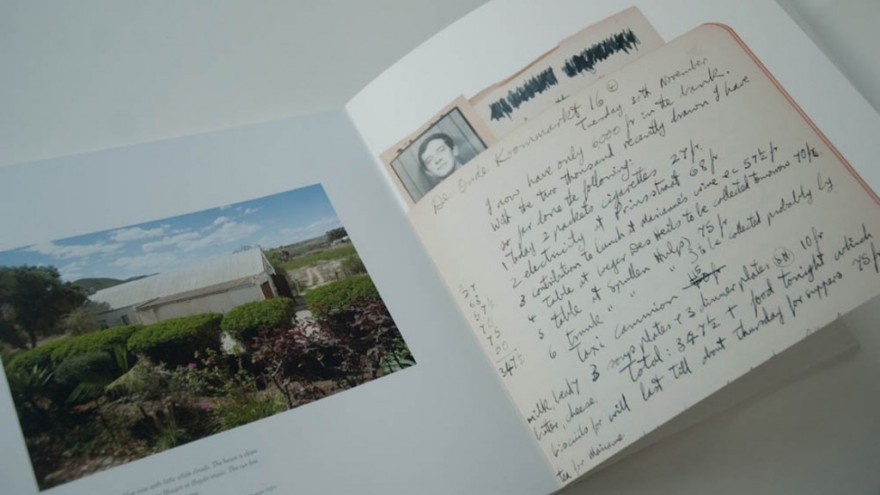 De Oude Koornmarkt 16
Tuesday 30th November
I now have only 6000 fr in the bank.
With the two thousand recently drawn I have
so far done the following:
1 today 2 packets cigarettes 27 fr.
2 electricity at Prinsstraat 68 fr
3 contribution to lunch at wine 57½ fr
4 table at Leger Des Heils to be collected tomorrow 70 fr.
5 table at Spullen Hulp 75 fr
6 trunk " " " to be collected probably by
taxi camion
3 soup plates + 3 dinner plates 10 fr
Total: 347½ + food tonight which
will last till about thursday for suppers 75 fr
milk
cheese
biscuits
tea for
347½